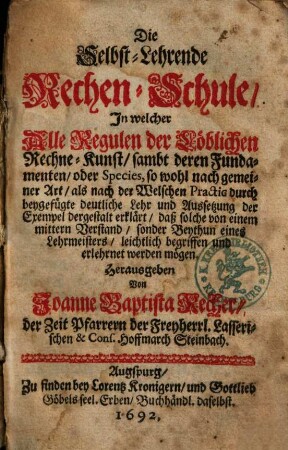 Die
Selbst-Lehrende
Rechen-Schule/
In welcher
Alle Regulen der Löblichen
Rechne-Kunst/ sambt deren Funda-
menten/ oder Species, so wohl nach gemei-
ner Art/ als nach der Welschen Practic durch
beygefügte deutliche Lehr und Aussetzung der
Exempel dergestalt erklärt/ daß solche von einem
mittern Verstand/ sonder Beythun eines
Lehrmeisters/ leichtlich begriffen und
erlehrnet werden mögen.
Herausgeben
Von
Joanne Baptista Recher/
der Zeit Pfarrern der Freyherrl. Lasseri-
schen & Cons. Hoffmarch Steinbach.
Augspurg/
Zu finden bey Lorentz Kronigern/ und Gottlieb
Göbels seel. Erben/ Buchhändl. daselbst.
1692.